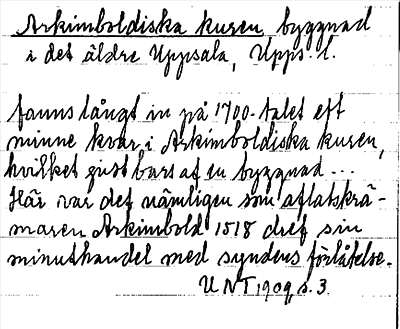 Arkimboldiska kuren, byggnad
i det äldre Uppsala, Upps. l.
fanns långt in på 1700-talet ett
minne kvar i Arkimboldiska kuren,
hvilket just bars af en byggnad...
Här var det nämligen som aflatskrä-
maren Arkimbold 1518 dref sin
minuthandel med syndens förlåtelse.
UNT 1909 s. 3.